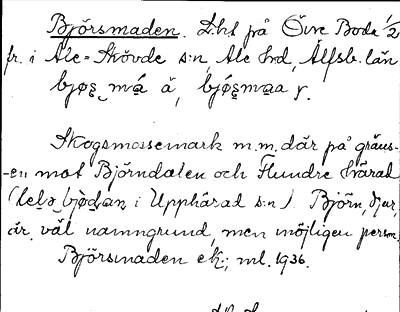 Björsmaden. D:ht på Övre Boda 1/2
fr. i Ale-Skövde s:n, Ale hrd, Älfsb. län
bjø̜ʂ má̱ ä, bjǿ̜ʂma̱a r.
Skogsmossemark m.m. där på gräns-
-en mot Björndalen och Flundre härad
i Upphärad s:n). Björn, djur,
är väl namngrund, men möjligen person.
Björsmaden ek.; ml. 1936.